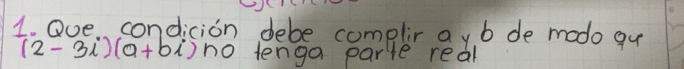 1. Que. condición debe complir a y b de modo qu
(2-3i)(a+bi) no tenga parte real